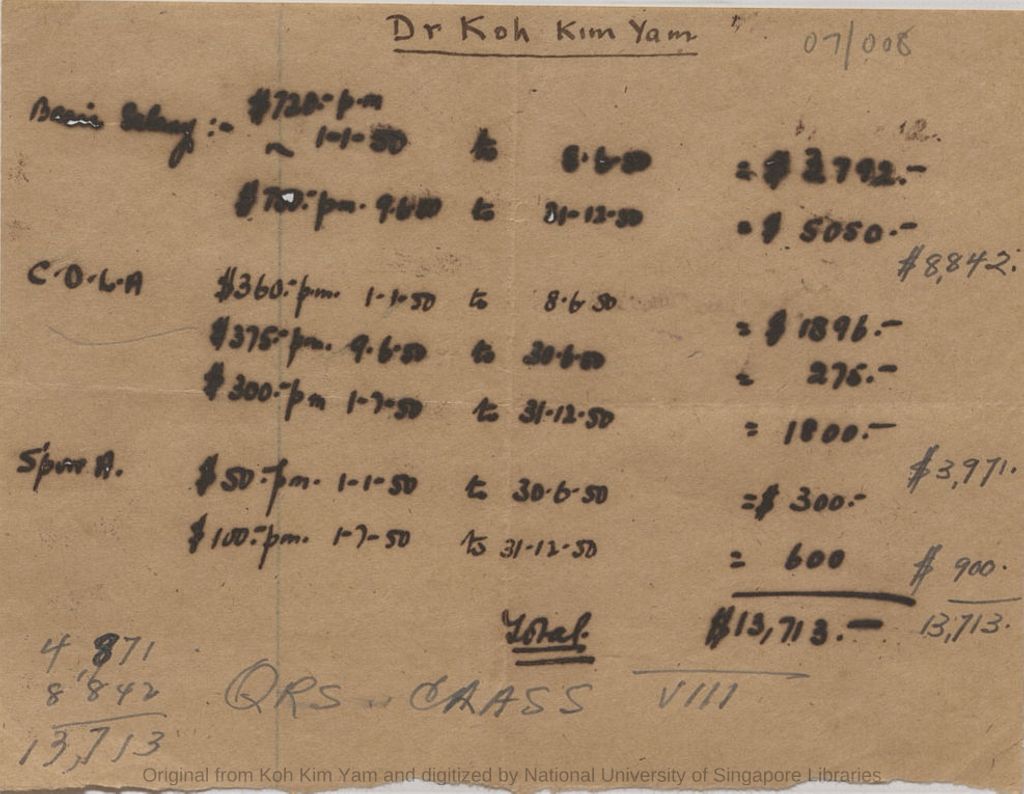 Dr Koh Kim Yam
07/008
Basic Salary :- $720.- p.m
1-1-50 to 8.6.50 = $ 3792.-
$750.- pm. 9.6.50 to 31-12-50 = $ 5050.-
$8,842.
C.O.L.A $360.- p.m. 1-1-50 to 8.6.50 = $ 1896.-
$375.- pm. 9.6.50 to 30.6.50 = 275.-
$300.- pm 1-7-50 to 31-12-50 = 1800.-
$3,971.
A. $50.- pm. 1-1-50 to 30.6.50 = $ 300.-
$100.- pm. 1-7-50 to 31-12-50 = 600
$ 900.
Total. $13,713.-
13,713.
4 871
8 842
13,713
QRS CAASS VIII
Original from Koh Kim Yam and digitized by National University of Singapore Libraries